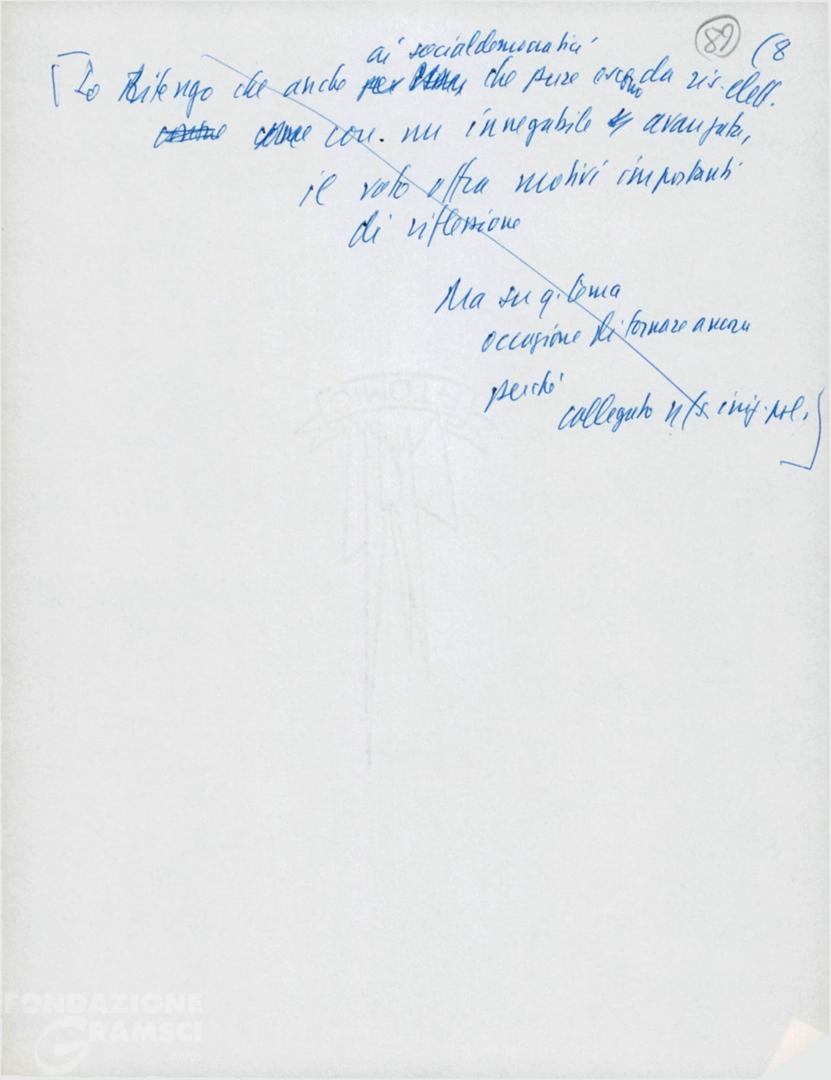 89
(8
ai socialdemocratici
[Io Ritengo che anche per che pure escono da ris. elett.
come con. un innegabile avanzata,
il voto offra motivi importanti
di riflessione
Ma su q. tema
occasione di tornare ancora
perché
collegato iniz. pol.]
FONDAZIONE
GRAMSCI